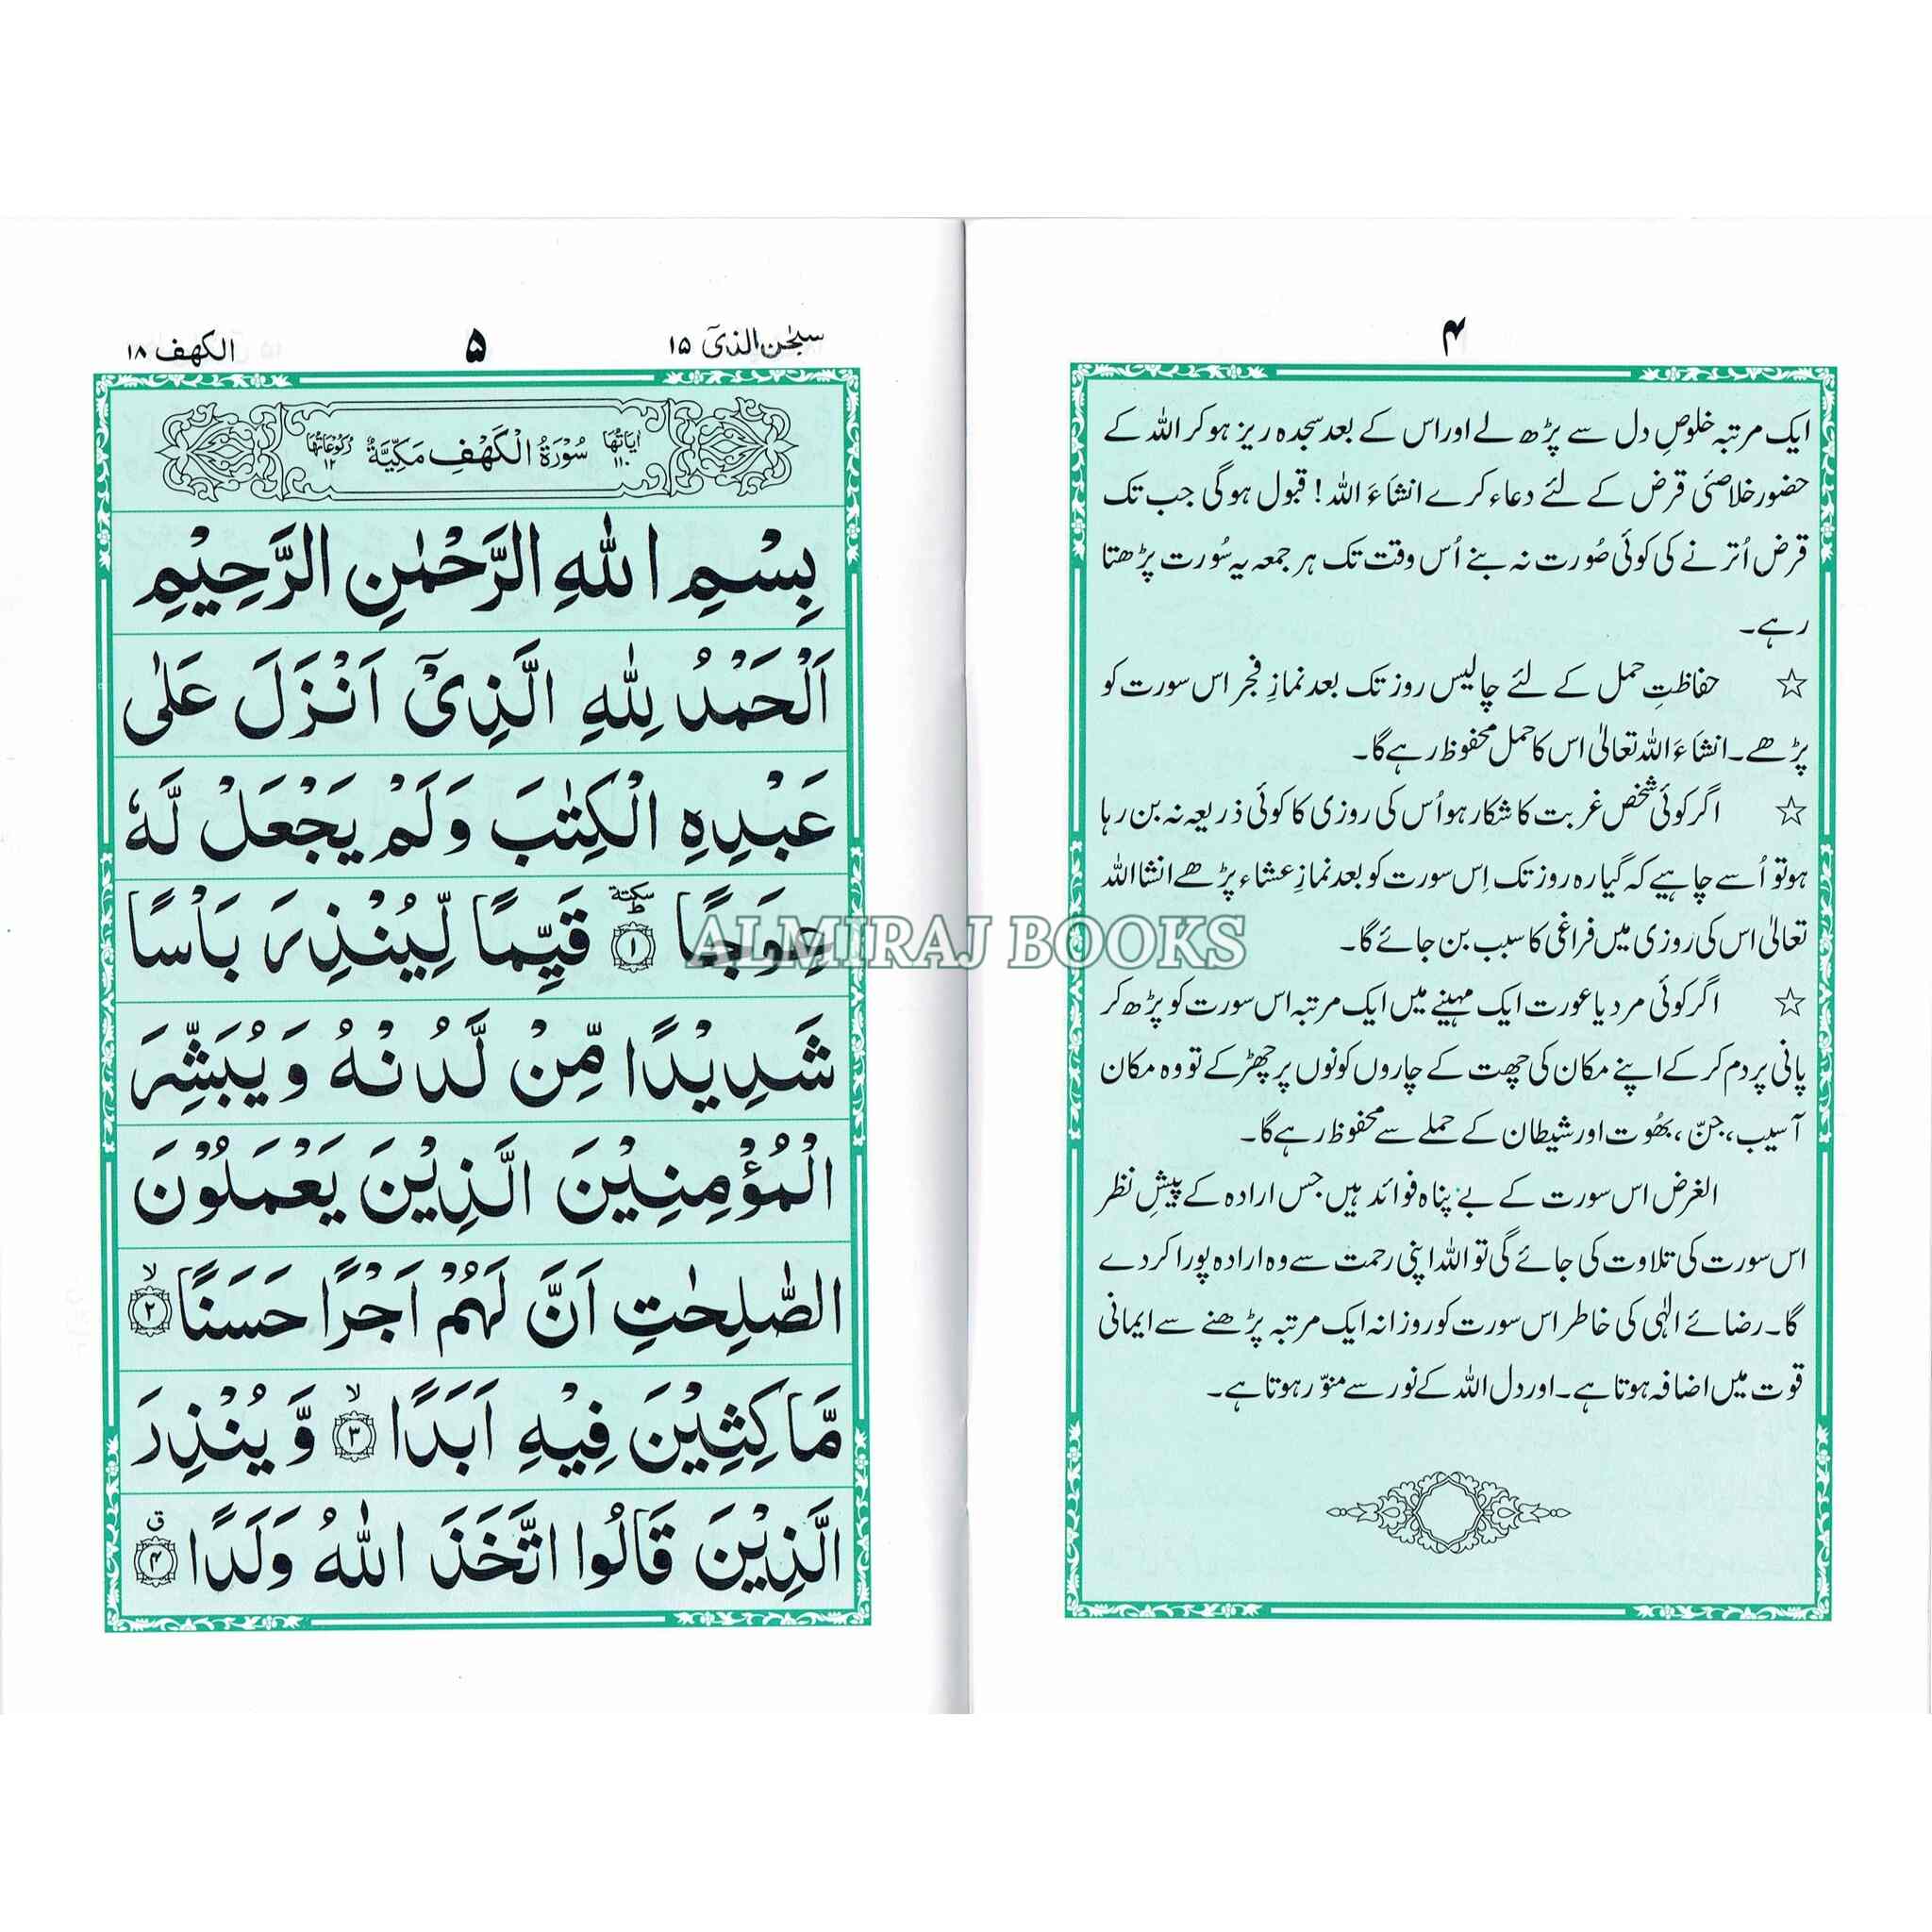 ۴
ایک مرتبہ خلوصِ دل سے پڑھ لے اور اس کے بعد سجدہ ریز ہو کر اللہ کے
حضور خلاصئی قرض کے لئے دعاء کرے انشاَءَ اللہ! قبول ہوگی جب تک
قرض اُترنے کی کوئی صُورت نہ بنے اُس وقت تک ہر جمعہ یہ سُورت پڑھتا
رہے۔
☆ حفاظتِ حمل کے لئے چالیس روز تک بعد نمازِ فجر اس سورت کو
پڑھے۔ انشاَءَ اللہ تعالیٰ اس کا حمل محفوظ رہے گا۔
☆ اگر کوئی شخص غربت کا شکار ہو اُس کی روزی کا کوئی ذریعہ نہ بن رہا
ہو تو اُسے چاہیے کہ گیارہ روز تک اِس سورت کو بعد نمازِ عشاء پڑھے انشا اللہ
تعالیٰ اس کی روزی میں فراغی کا سبب بن جائے گا۔
☆ اگر کوئی مرد یا عورت ایک مہینے میں ایک مرتبہ اس سورت کو پڑھ کر
پانی پر دم کر کے اپنے مکان کی چھت کے چاروں کونوں پر چھڑکے تو وہ مکان
آسیب، جنّ، بھُوت اور شیطان کے حملے سے محفوظ رہے گا۔
الغرض اس سورت کے بے پناہ فوائد ہیں جس ارادہ کے پیشِ نظر
اس سورت کی تلاوت کی جائے گی تو اللہ اپنی رحمت سے وہ ارادہ پورا کر دے
گا۔ رضائے الٰہی کی خاطر اس سورت کو روزانہ ایک مرتبہ پڑھنے سے ایمانی
قوت میں اضافہ ہوتا ہے۔ اور دل اللہ کے نور سے منوّر ہوتا ہے۔
سبحٰن الذیٓ ۱۵ ۵ الکھف ۱۸
اٰیاتھا ۱۱۰ سُوْرَةُ الْكَهْفِ مَكِّيَّةٌ رکوعاتھا ۱۲
بِسْمِ اللّٰهِ الرَّحْمٰنِ الرَّحِيْمِ
اَلْحَمْدُ لِلّٰهِ الَّذِيْٓ اَنْزَلَ عَلٰى
عَبْدِهِ الْكِتٰبَ وَلَمْ يَجْعَلْ لَّهٗ
عِوَجًا ۱ سكتة قَيِّمًا لِّيُنْذِرَ بَاْسًا
شَدِيْدًا مِّنْ لَّدُنْهُ وَيُبَشِّرَ
الْمُؤْمِنِيْنَ الَّذِيْنَ يَعْمَلُوْنَ
الصّٰلِحٰتِ اَنَّ لَهُمْ اَجْرًا حَسَنًا ۲ۙ
مَّاكِثِيْنَ فِيْهِ اَبَدًا ۳ۙ وَّيُنْذِرَ
الَّذِيْنَ قَالُوا اتَّخَذَ اللّٰهُ وَلَدًا ۴ ق
ALMIRAJ BOOKS